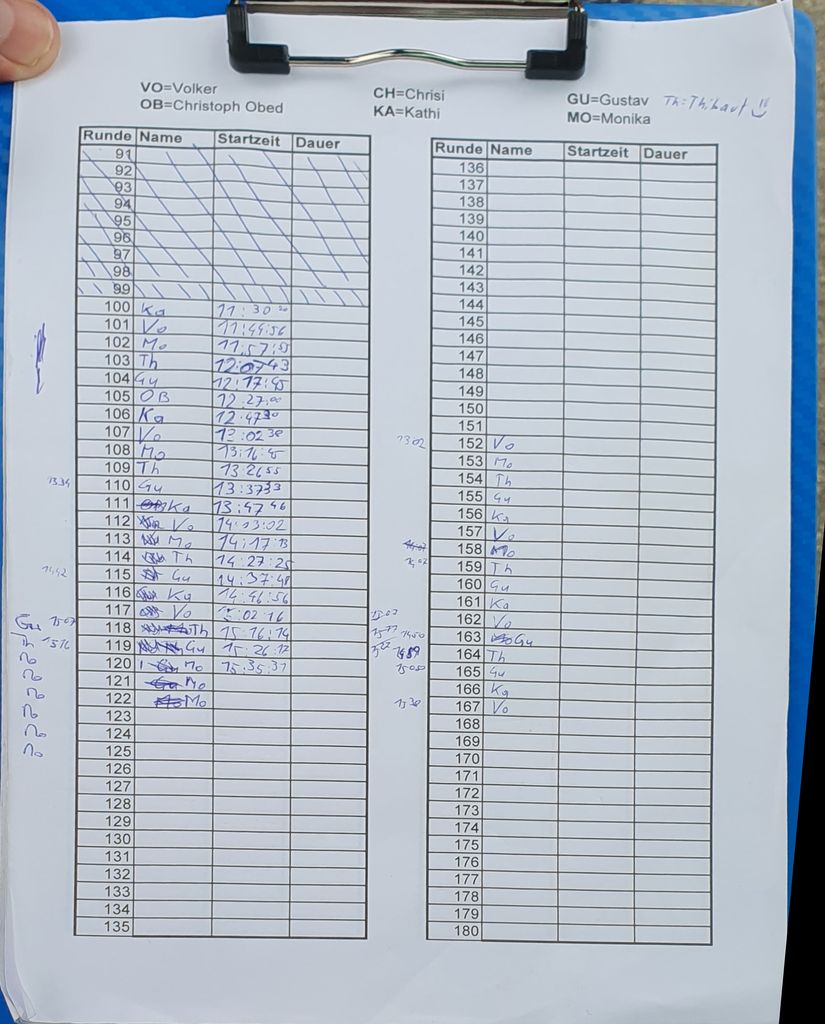 VO=Volker CH=Chrisi GU=Gustav Th=Thibaut
OB=Christoph Obed KA=Kathi MO=Monika
Runde Name Startzeit Dauer
91
92
93
94
95
96
97
98
99
100 Ka 11:30
101 Vo 11:44:56
102 Mo 11:57:55
103 Th 12:07 43
104 Gu 12:17:45
105 OB 12:27:00
106 Ka 12:47 30
107 Vo 13:02 38
108 Mo 13:16:45
109 Th 13:26 55
13:34 110 Gu 13:37 33
111 Ka 13:47 46
112 Vo 14:03:02
113 Mo 14:17:13
114 Th 14:27:25
14:42 115 Gu 14:37:48
116 Ka 14:46:56
117 Vo 15:02:16
Gu 15:07 118 Th 15:16:14
Th 15:16 119 Gu 15:26:12
120 Mo 15:35:31
121 Mo
122 Mo
123
124
125
126
127
128
129
130
131
132
133
134
135
Runde Name Startzeit Dauer
136
137
138
139
140
141
142
143
144
145
146
147
148
149
150
151
13:02 152 Vo
153 Mo
154 Th
155 Gu
156 Ka
157 Vo
158 Mo
159 Th
160 Gu
161 Ka
162 Vo
163 Gu
164 Th
165 Gu
166 Ka
167 Vo
168
169
170
171
172
173
174
175
176
177
178
179
180